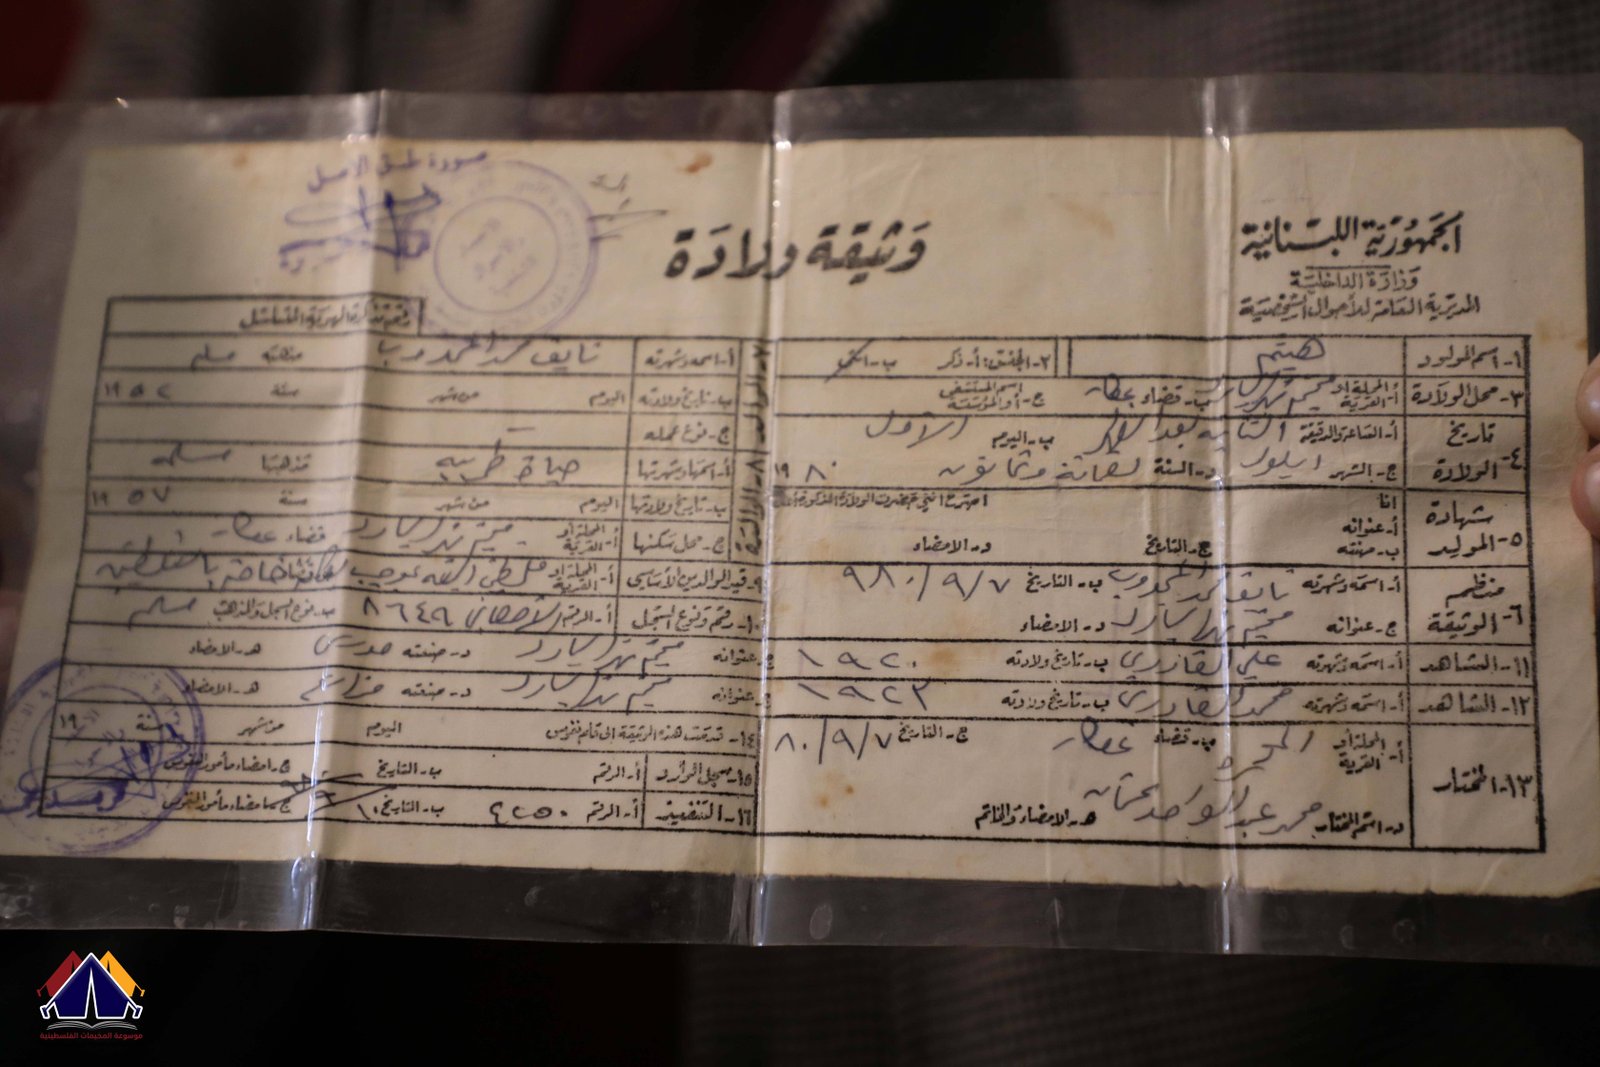 الجمهورية اللبنانية
وزارة الداخلية
المديرية العامة للأحوال الشخصية
وثيقة ولادة
صورة طبق الاصل
رقم تذكرة الهوية المتسلسل
١- اسم المولود هيثم ٢- الجنس: أ- ذكر ب- انثى
٣- محل الولادة أ- المحلة او القرية مخيم نهر البارد ب- قضاء عكار ج- اسم المستشفى أو المؤسسة
٤- تاريخ الولادة أ- الساعة والدقيقة الثانية بعد الظهر ب- اليوم الاول
ج- الشهر ايلول د- السنة ثمانون ١٩٨٠
٥- شهادة المولد انا اصرح انني حضرت الولادة المذكورة اعلاه
أ- عنوانه
ب- مهنته ج- التاريخ د- الامضاء
٦- منظم الوثيقة أ- اسمه وشهرته نايف محمد المجدوب ب- التاريخ ٩٨٠/٩/٧
ج- عنوانه مخيم نهر البارد د- الامضاء
٧- الوالد أ- اسمه وشهرته نايف محمد المجدوب مذهبه مسلم
ب- تاريخ ولادته اليوم من شهر سنة ١٩٥٢
ج- نوع عمله
٨- الوالدة أ- اسمها وشهرتها مذهبها مسلمه
ب- تاريخ ولادتها اليوم من شهر سنة ١٩٥٧
ج- محل سكنها أ- المحلة أو القرية مخيم نهر البارد قضاء عكار
٩- قيد الوالدين الأساسي أ- المحلة او القرية بموجب خاصة
١٠- رقم ونوع السجل أ- الرقم الاحصائي ٨٦٤٤٩ ب- نوع السجل والمذهب مسلم
١١- الشاهد أ- اسمه وشهرته علي القادري ب- تاريخ ولادته ١٩٢٠ ج- عنوانه مخيم نهر البارد د- صنعته هـ- الامضاء
١٢- الشاهد أ- اسمه وشهرته محمد القادري ب- تاريخ ولادته ١٩٢٣ ج- عنوانه مخيم نهر البارد د- صنعته مزارع هـ- الامضاء
١٣- المختار أ- المحلة أو القرية المحمرة ب- قضاء عكار ج- التاريخ ٨٠/٩/٧
د- اسم المختار محمد عبد الواحد عثمان هـ- الامضاء والخاتم
١٤- قدمت هذه الوثيقة إلى قلم نفوس اليوم من شهر سنة ١٩
١٥- سجل الوارد أ- الرقم ب- التاريخ ج- امضاء مأمور النفوس
١٦- التنفيذ أ- الرقم ٤٢٥٠ ب- التاريخ ج- امضاء مأمور النفوس
موسوعة المخيمات الفلسطينية